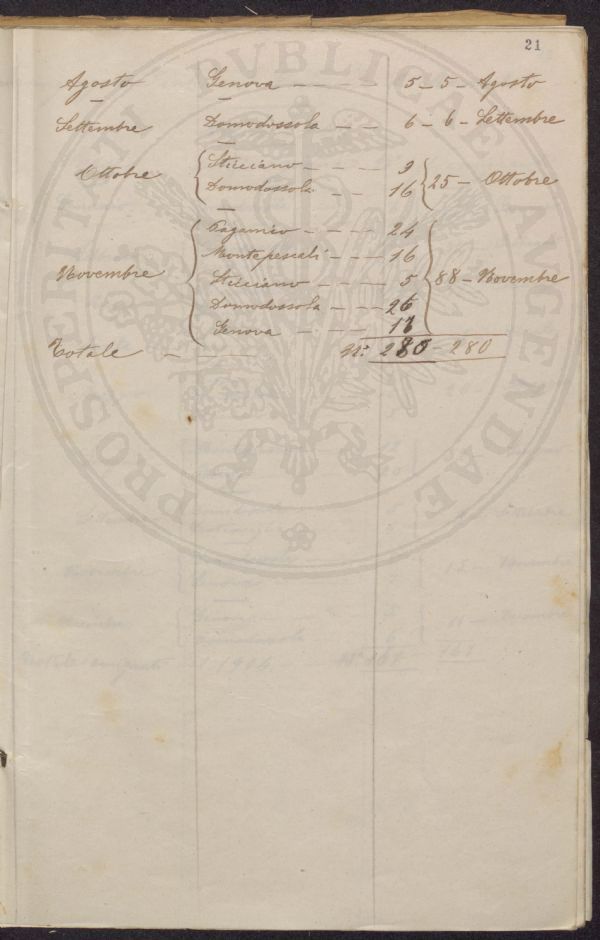 21
Agosto Genova - - - - 5 - 5 - Agosto
Settembre Domodossola - - 6 - 6 - Settembre
Sticciano - - - - 9
Ottobre 25 - Ottobre
Domodossola - - 16
Paganico - - - 24
Montepescali - - - 16
Novembre Sticciano - - - - 5 88 - Novembre
Domodossola - - - 26
Genova - - - - 17
Totale - N: 280 - 280
PROSPERITATI PVBLICAE AVGENDAE